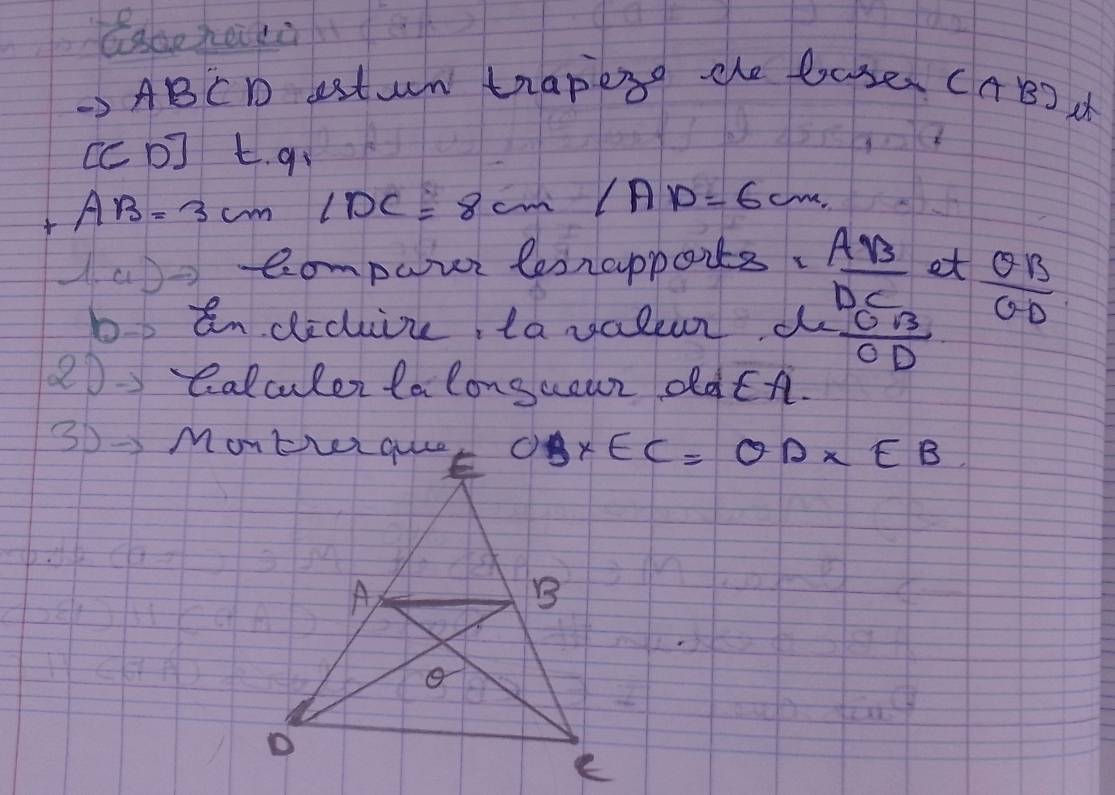 Exercice
→ ABCD est un trapèze de bases [AB] et
[CD] t.q.
+ AB = 3 cm / DC = 8 cm / AD = 6 cm.
1.a) → Comparer les rapports. AB/DC et OB/OD
b → En déduire, la valeur de OB/OD
2) → Calculer la longueur de EA.
3) → Montrer que, OB × EC = OD × EB
E
A B
O
D C